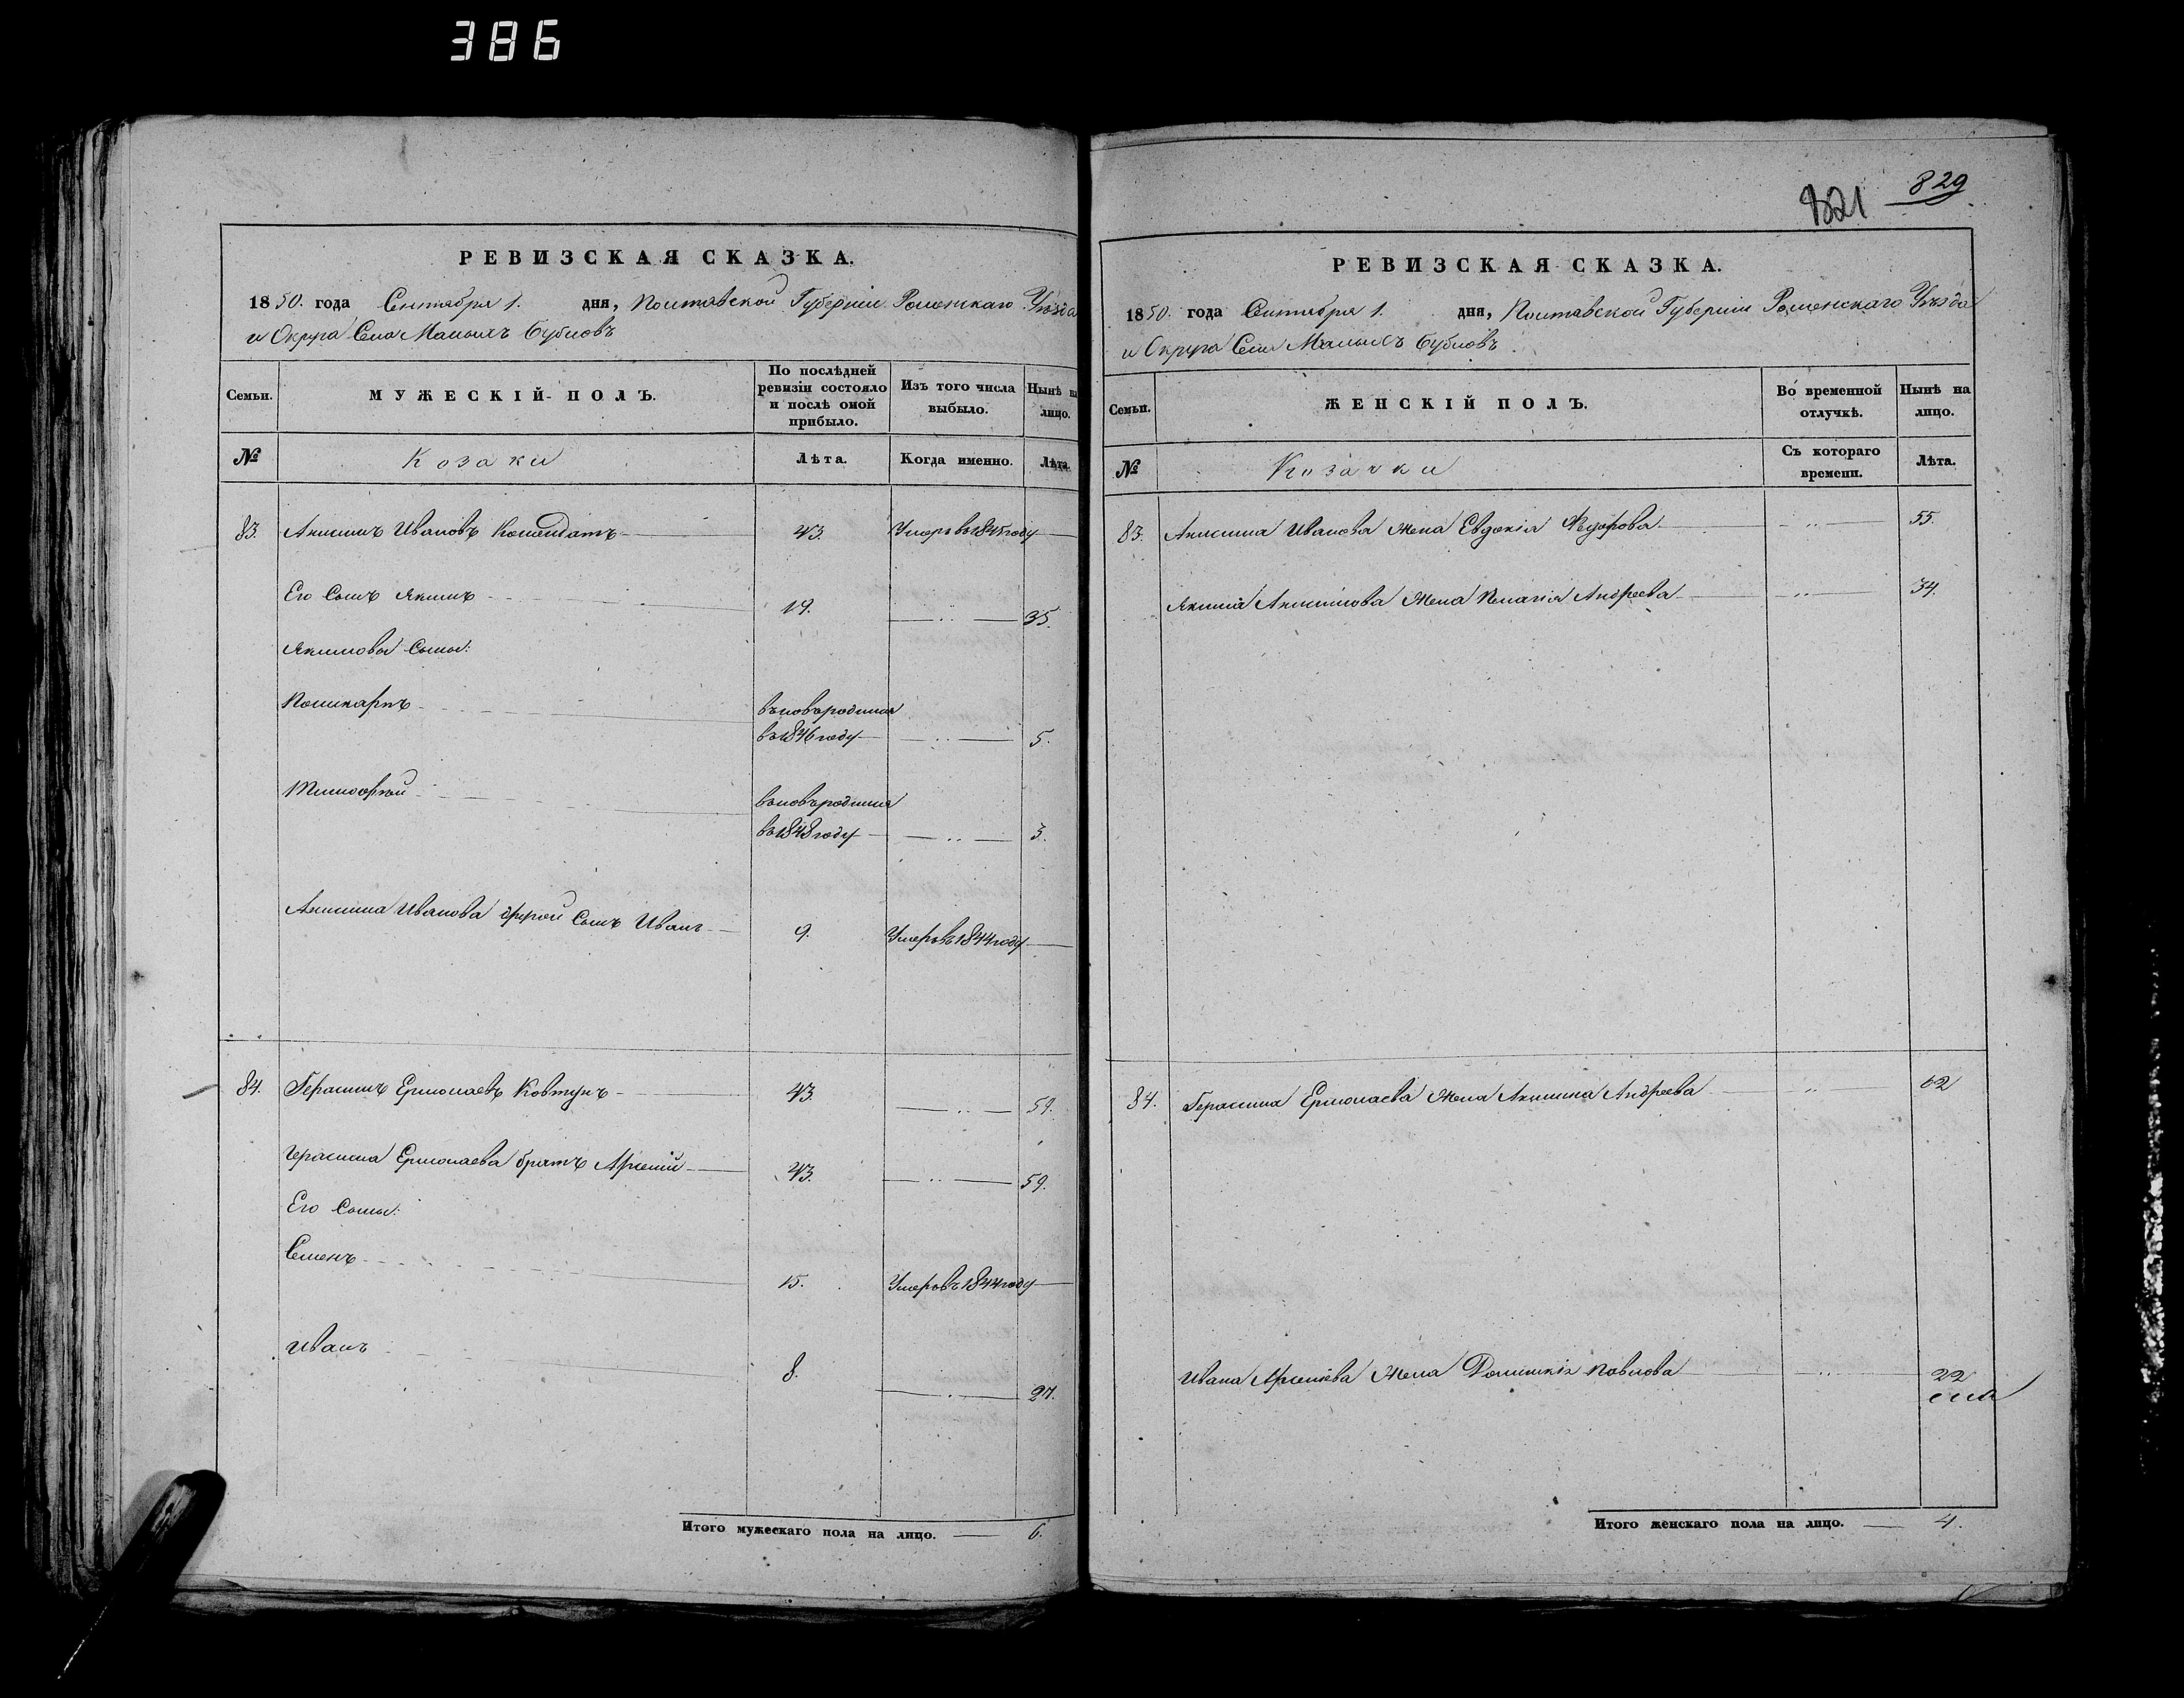 386
РЕВИЗСКАЯ СКАЗКА.
1850. года Сентября 1. дня, Полтавской Губерніи Роменскаго Уѣзда
и Округа Села Малыхъ Бубновъ
Семьи. МУЖЕСКІЙ ПОЛЪ. По послѣдней ревизіи состояло и послѣ оной прибыло. Изъ того числа выбыло. Нынѣ на лицо.
№ Козаки Лѣта. Когда именно. Лѣта.
83. Анисимъ Ивановъ 43. Умеръ въ 1845 году
Его Сынъ Якимъ 19. 35.
Якимовы Сыны:
Поликарпъ вновь родился
въ 1846 году 5.
Тимофей вновь родился
въ 1848 году 3.
Анисима Иванова другой Сынъ Иванъ 9. Умеръ въ 1844 году
84. Герасимъ Ермолаевъ Ковтунъ 43. 59.
Герасима Ермолаева братъ Арсеній 43. 59.
Его Сыны:
Семенъ 15. Умеръ въ 1844 году
Иванъ 8. 27.
Итого мужескаго пола на лицо. 6.
821 829
РЕВИЗСКАЯ СКАЗКА.
1850. года Сентября 1. дня, Полтавской Губерніи Роменскаго Уѣзда
и Округа Села Малыхъ Бубновъ
Семьи. ЖЕНСКІЙ ПОЛЪ. Во временной отлучкѣ. Нынѣ на лицо.
№ Козачки Съ котораго времени. Лѣта.
83. Анисима Иванова Жена Евдокія Федорова 55.
Якима Анисимова Жена Пелагія Андреева 34.
84. Герасима Ермолаева Жена Акилина Андреева 62
Ивана Арсеніева Жена Домникія Павлова 22
Итого женскаго пола на лицо. 4.